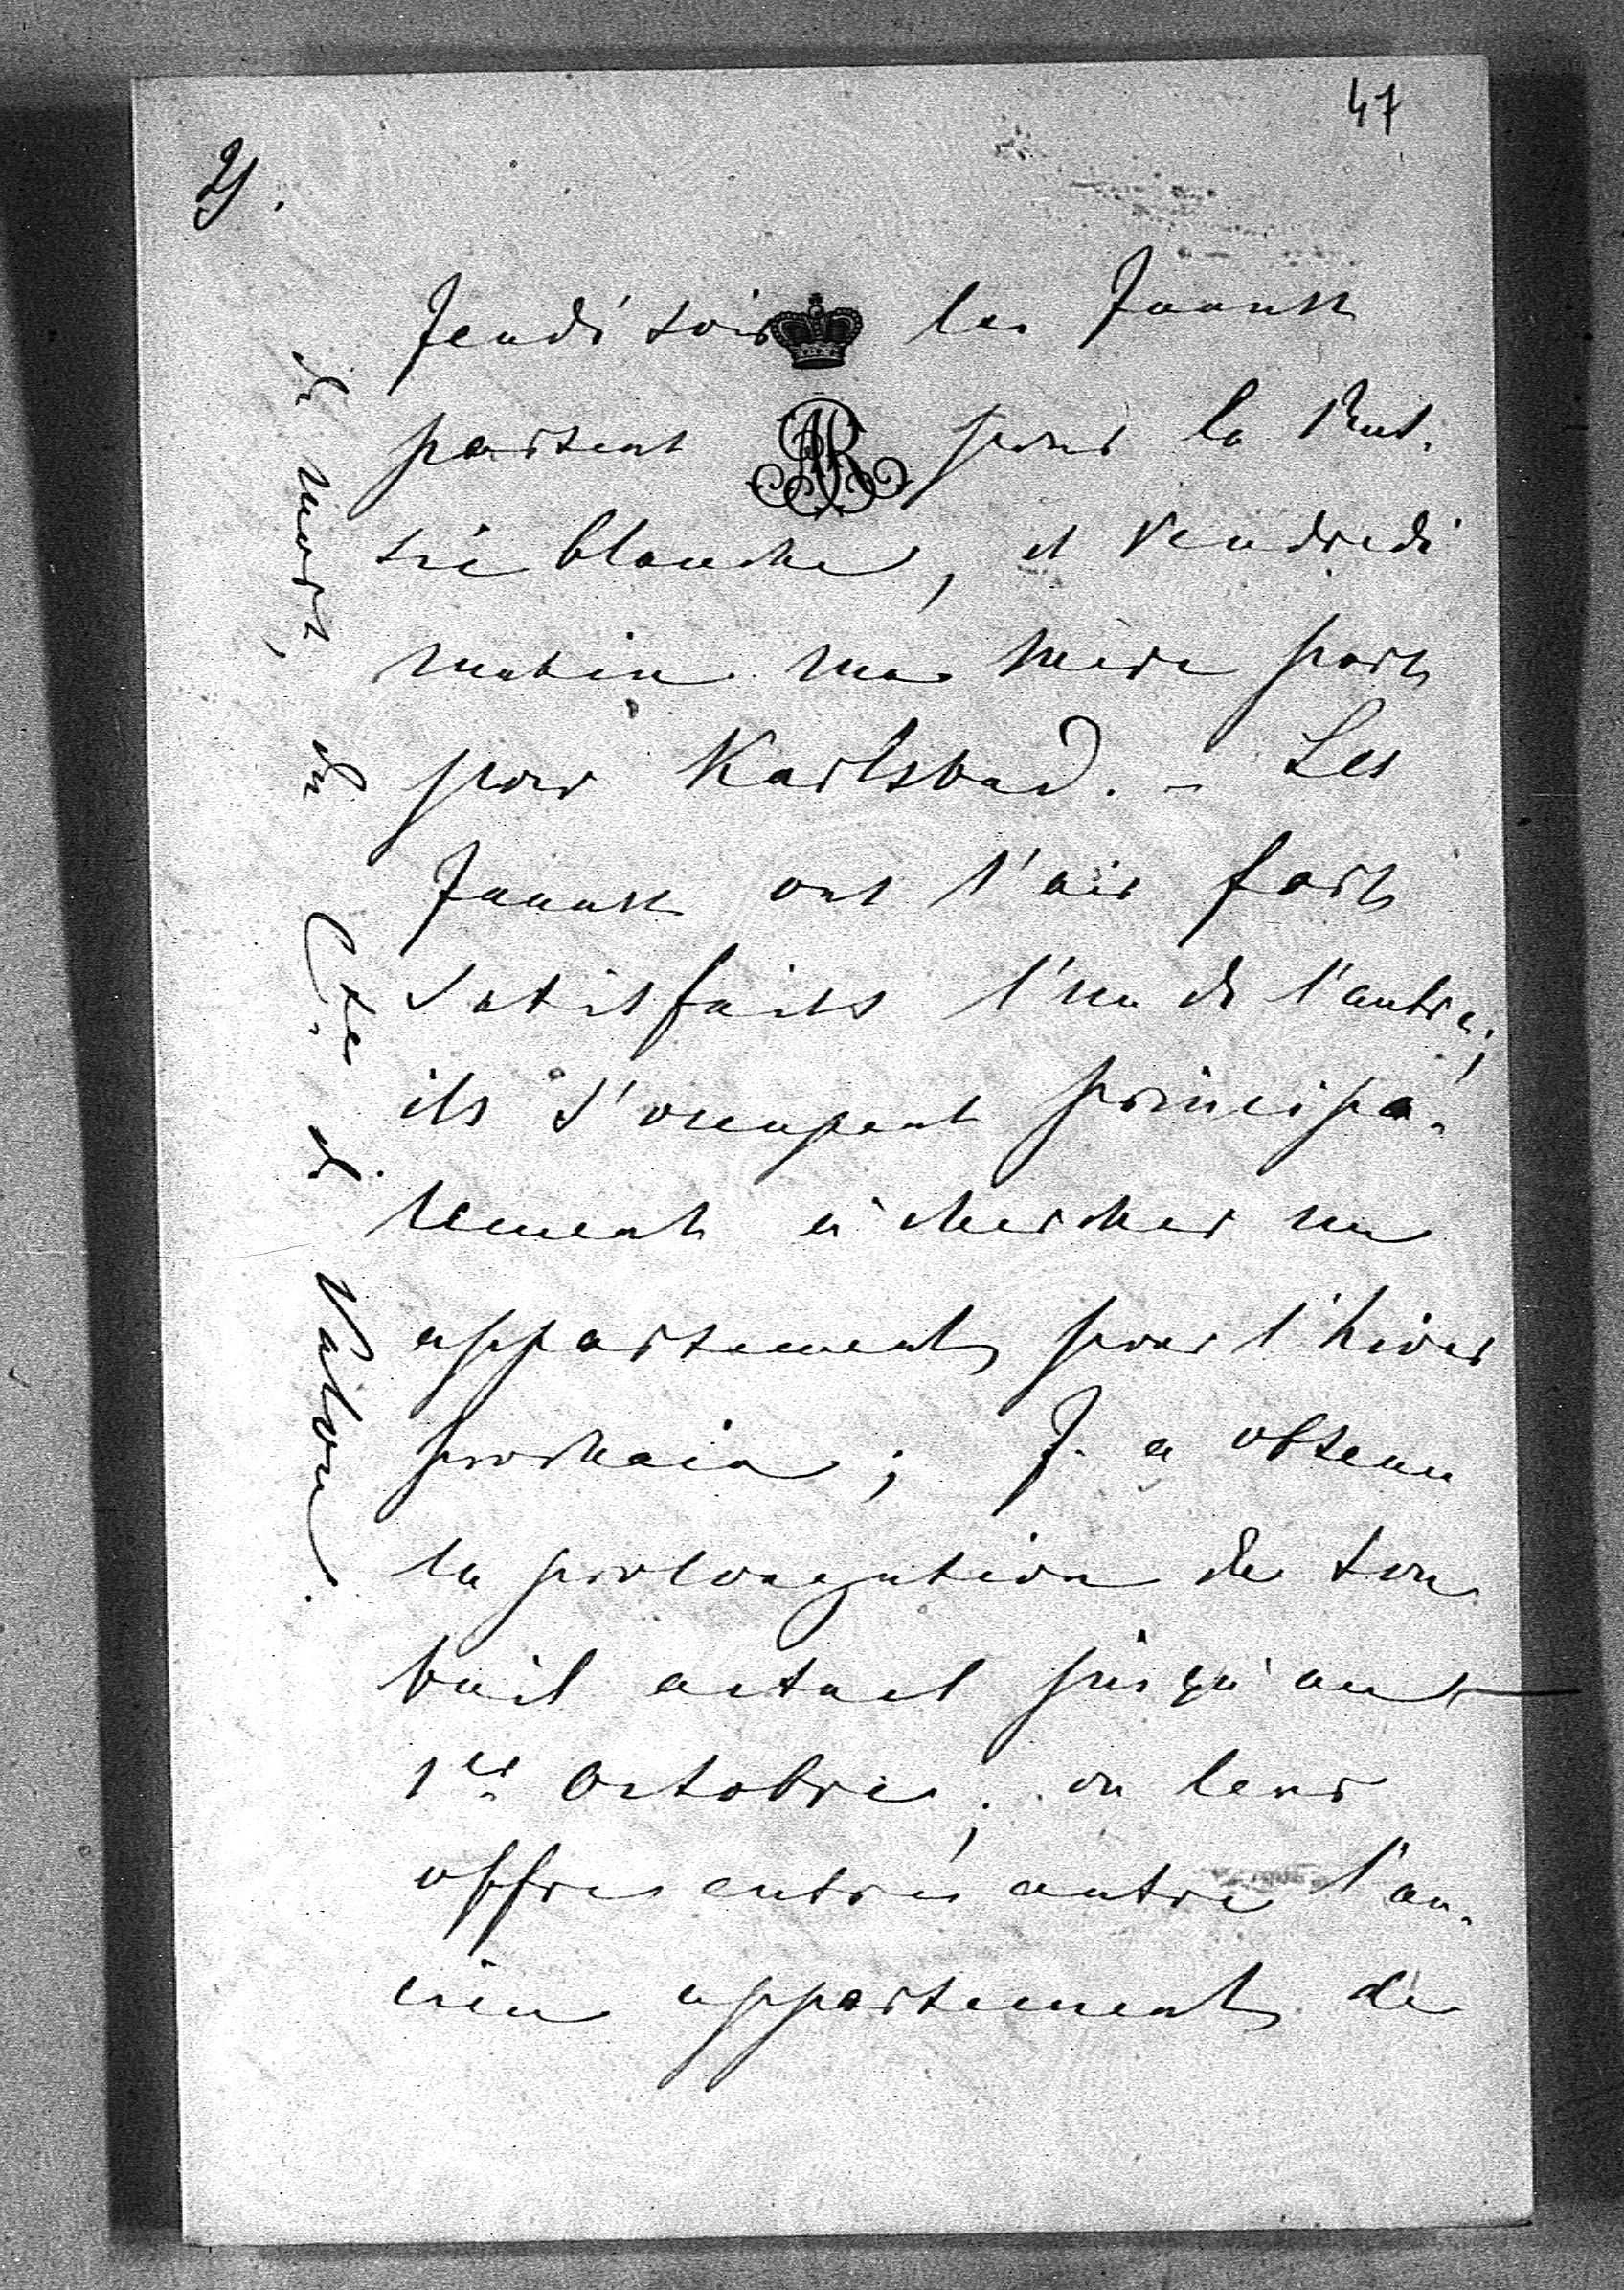 47
2).
Jeudi soir les Jeannot
partent pour la Rus-
sie blanche, et Vendredi
matin ma mère part
pour Karlsbad. – Les
ont l'air forts
satisfaits l'un de l'autre;
ils s'occupent principa-
lement à chercher un
appartement pour l'hiver
prochain; J. a obtenu
la prolongation de son
bail actuel jusqu'au
1er Octobre; on leur
offre entre autre l'an-
cien appartement de
la mort du Cte de Valvon.